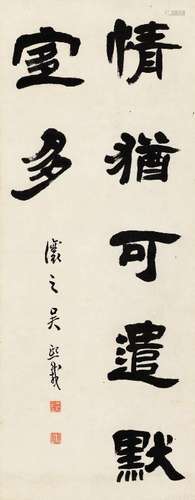 情猶可遣默
宜多
讓之吳熙載